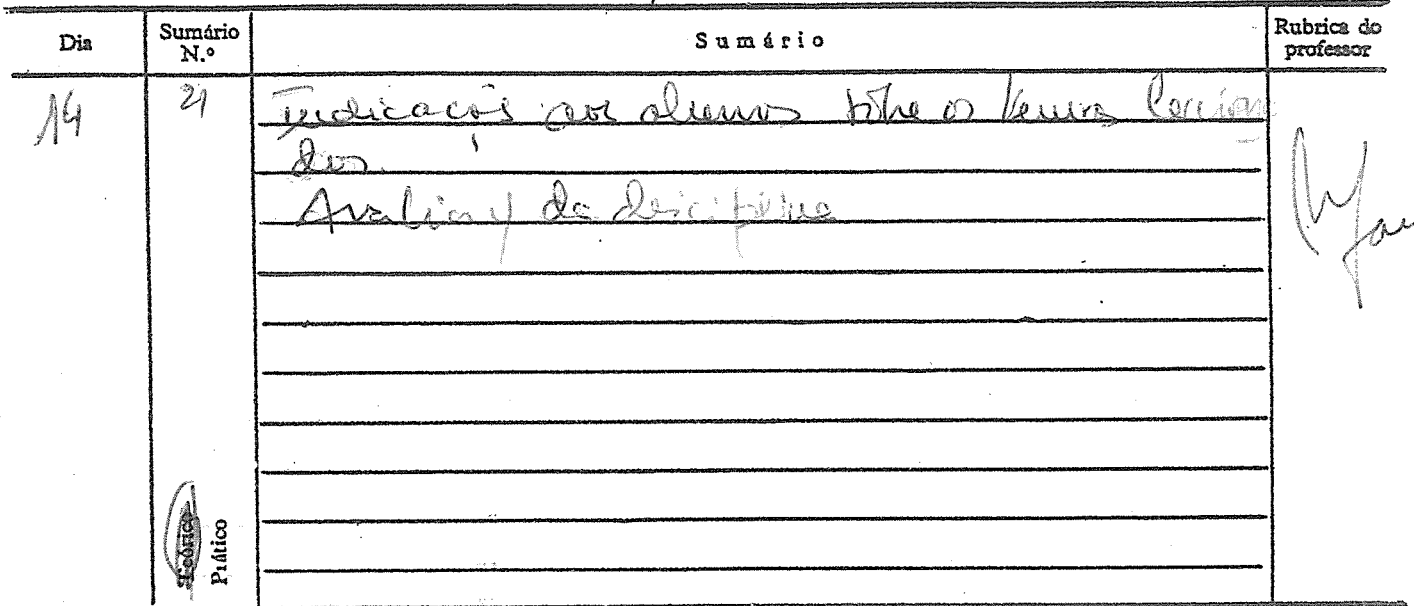 Dia
Sumário N.º
Sumário
Rubrica do professor
14
21
Indicações aos alunos sobre os temas leccion
dos.
Avaliação da disciplina
Teórico
Prático